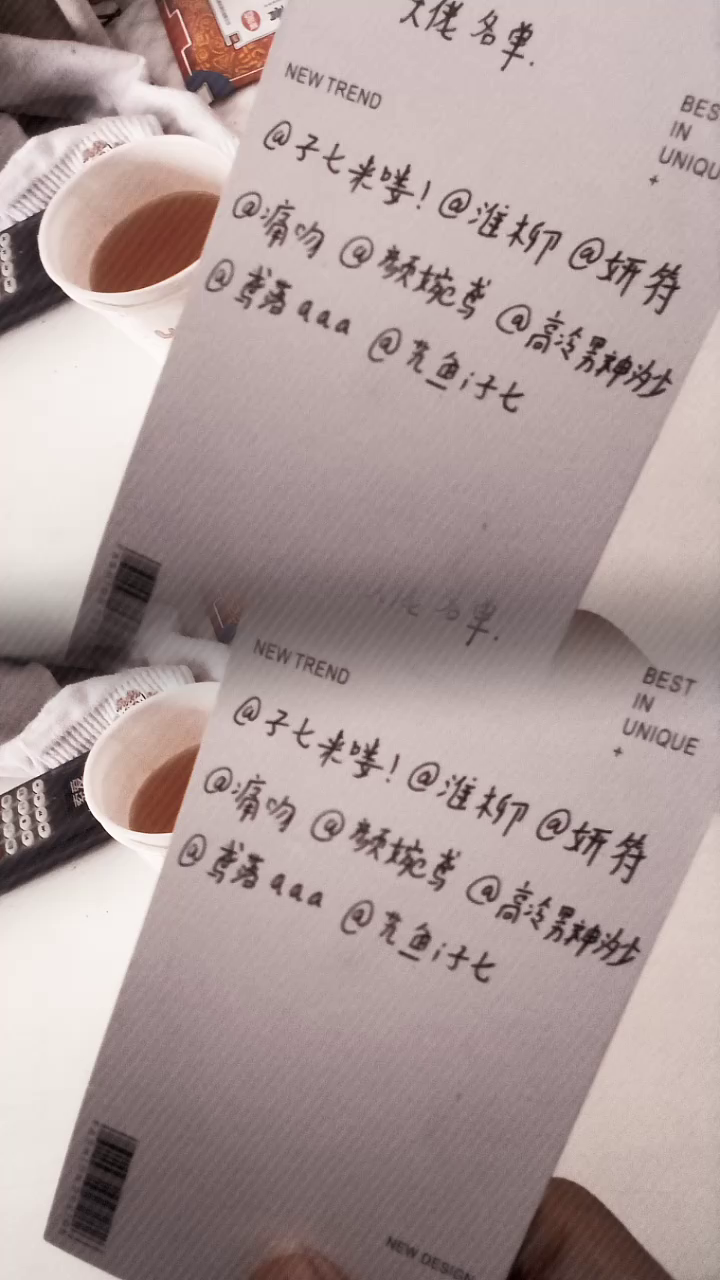 大佬名单.
NEW TREND
BEST
IN
UNIQUE
+
@子七来喽！@淮柳 @妍符
@痛吻 @颜婉鸢 @高冷男神汐上
@鸢落aaa @芜鱼i子七
大佬名单.
NEW TREND
BEST
IN
UNIQUE
+
@子七来喽！@淮柳 @妍符
@痛吻 @颜婉鸢 @高冷男神汐上
@鸢落aaa @芜鱼i子七
NEW DESIGN